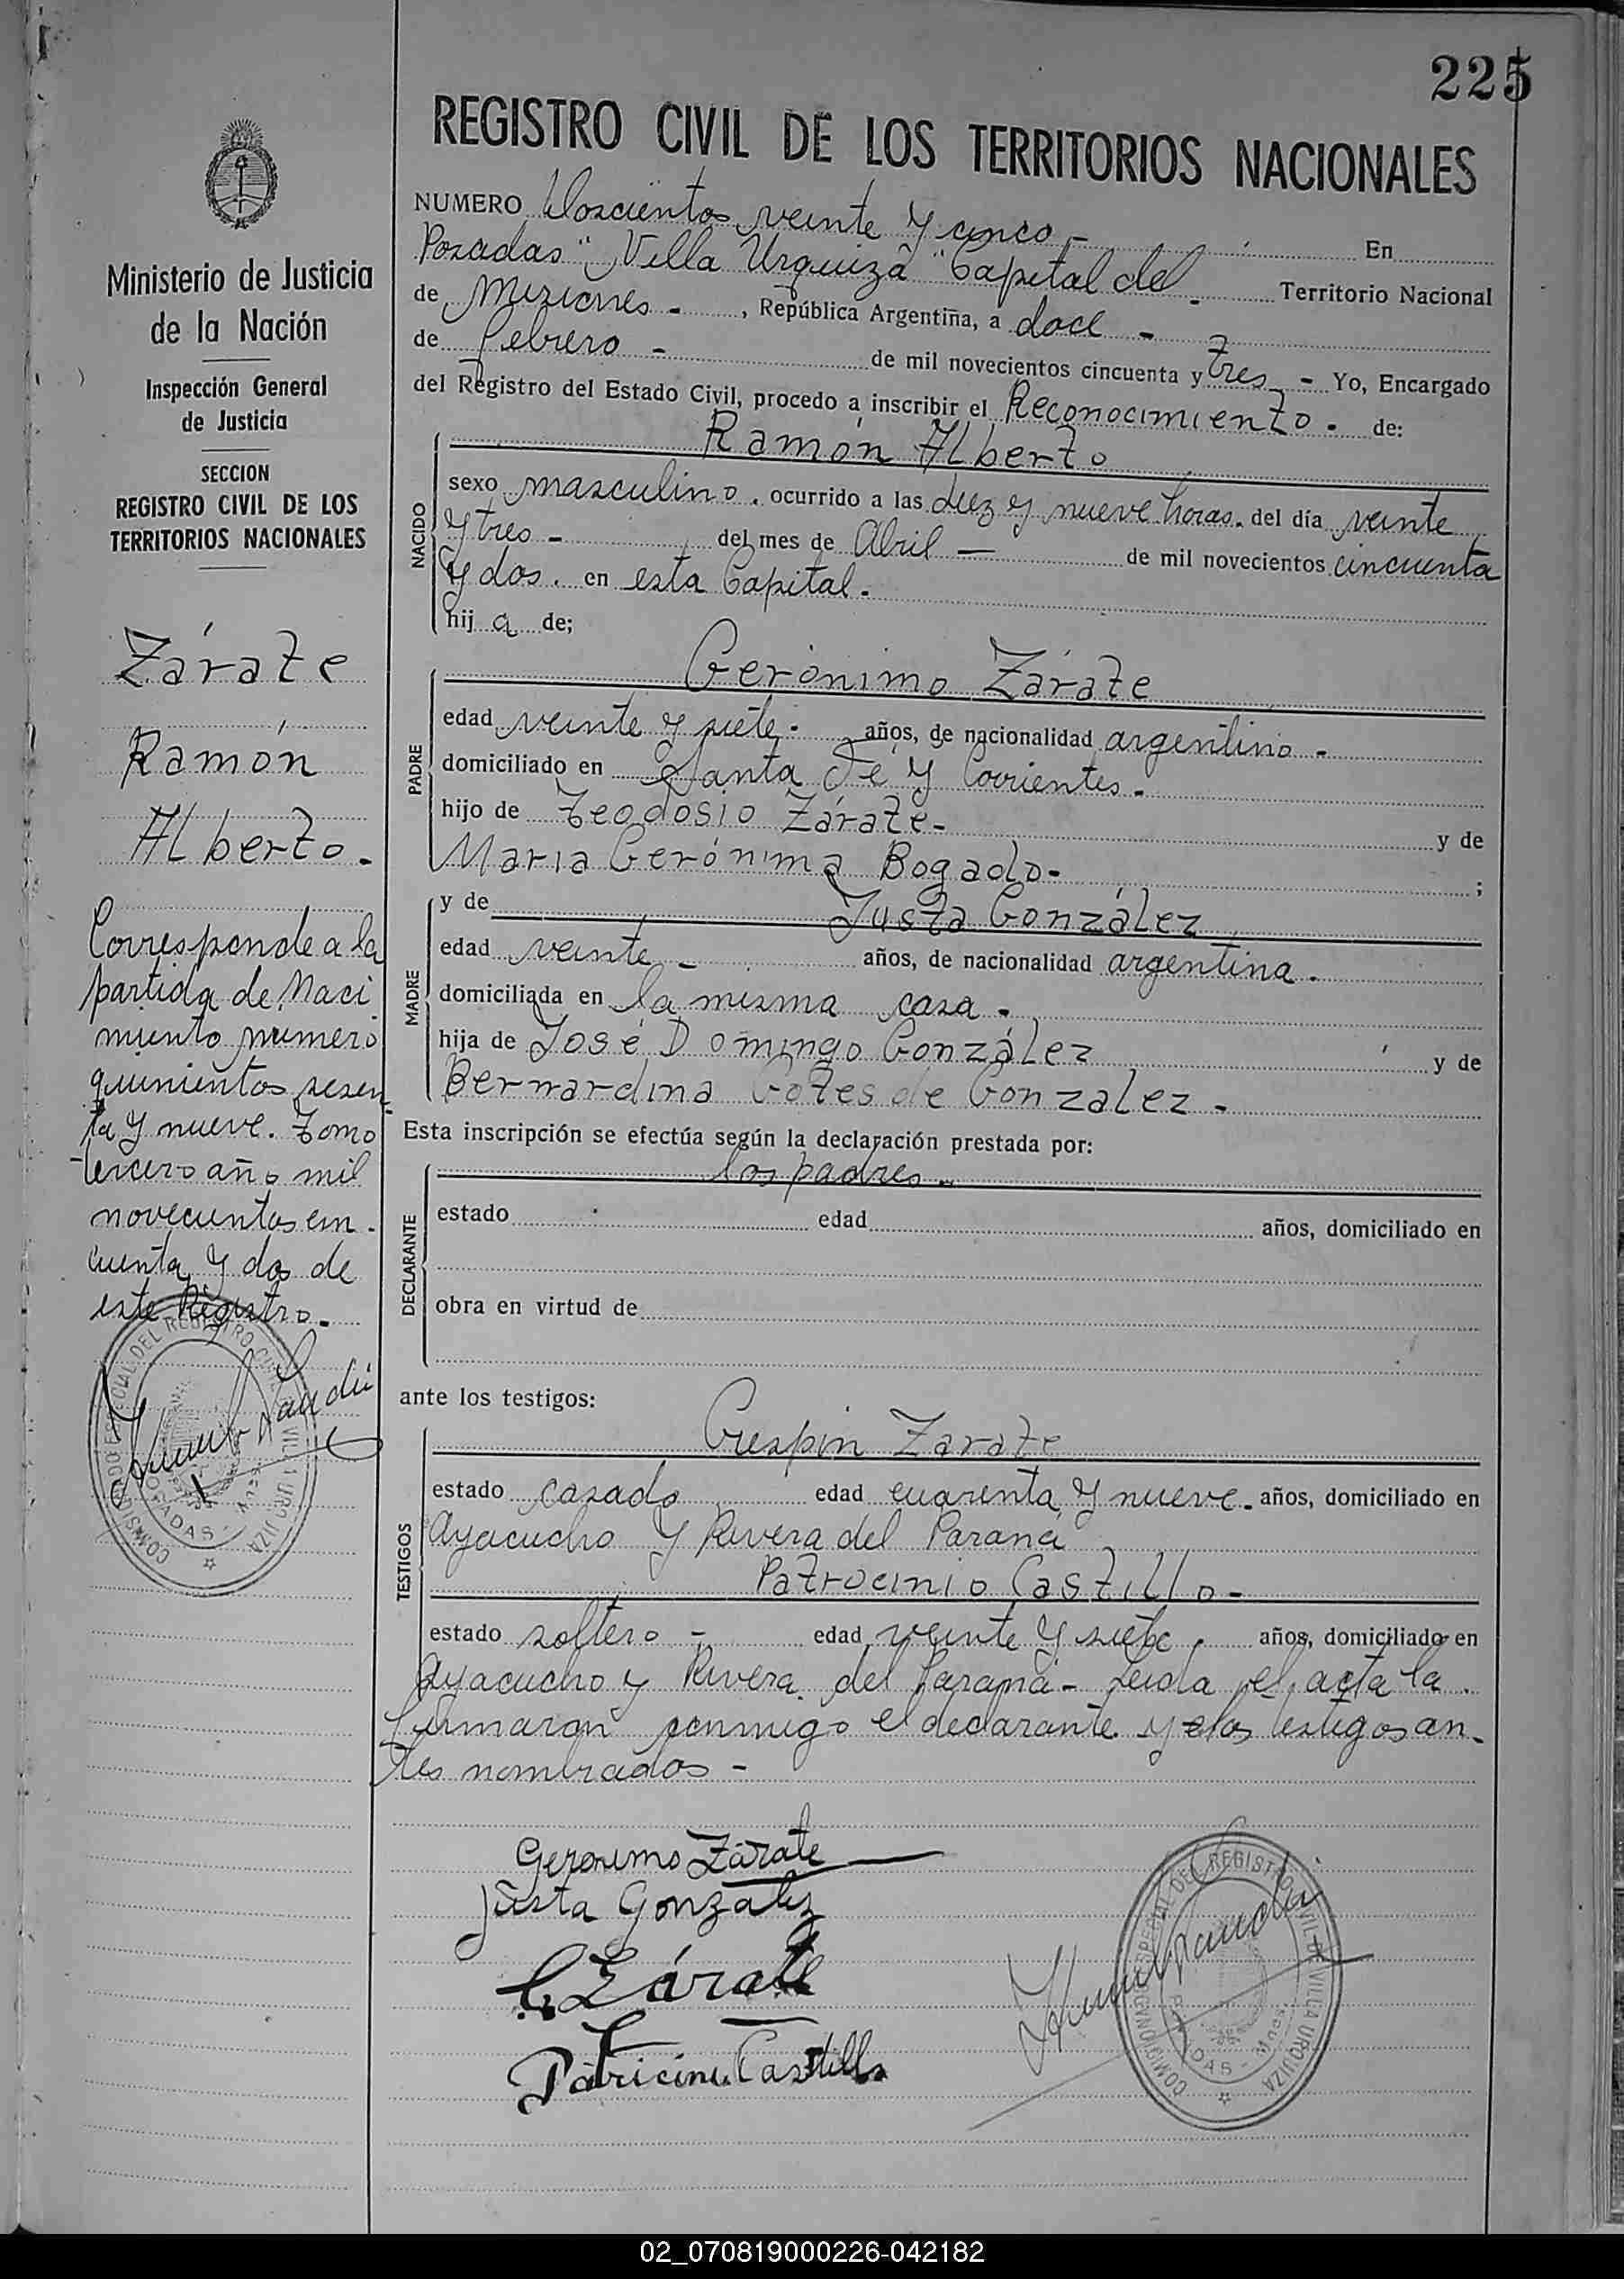 225
REGISTRO CIVIL DE LOS TERRITORIOS NACIONALES
Ministerio de Justicia
de la Nación
Inspección General
de Justicia
SECCION
REGISTRO CIVIL DE LOS
TERRITORIOS NACIONALES
Zárate
Ramón
Alberto.
Corresponde a la
partida de Naci
miento número
quinientos sesen-
ta y nueve. Tomo
tercero año mil
novecientos cin-
cuenta y dos de
este Registro.-
NUMERO Doscientos veinte y cinco - En
Posadas "Villa Urquiza" Capital del - Territorio Nacional
de Misiones - , República Argentina, a doce -
de febrero - de mil novecientos cincuenta y tres - Yo, Encargado
del Registro del Estado Civil, procedo a inscribir el Reconocimiento. de:
Ramón Alberto
NACIDO
sexo masculino. ocurrido a las diez y nueve horas. del día veinte
y tres - del mes de Abril — de mil novecientos cincuenta
y dos. en esta Capital.
hij a de;
Gerónimo Zárate
PADRE
edad veinte y siete - años, de nacionalidad argentino -
domiciliado en Santa Fé y Corrientes.
hijo de Teodosio Zárate - y de
Maria Gerónima Bogado- ;
y de Justa González
MADRE
edad veinte - años, de nacionalidad argentina.
domiciliada en la misma casa.
hija de José Domingo González y de
Bernardina de Gonzalez -
Esta inscripción se efectúa según la declaración prestada por:
los padres.
DECLARANTE
estado edad años, domiciliado en
obra en virtud de
ante los testigos:
Crespin Zarate
TESTIGOS
estado casado edad cuarenta y nueve. años, domiciliado en
Ayacucho y Rivera del Paraná
Patrocinio Castillo -
estado soltero - edad veinte y siete. años, domiciliado en
Ayacucho y Rivera del Paraná - Leida el acta la
firmaron conmigo el declarante y los testigos an-
tes nombrados -
Geronimo Zárate
Justa Gonzalez
C. Zárate
Castillo
COMISIONADO ESPECIAL DEL REGISTRO CIVIL DE VILLA URQUIZA
POSADAS - Mnes.
02_070819000226-042182